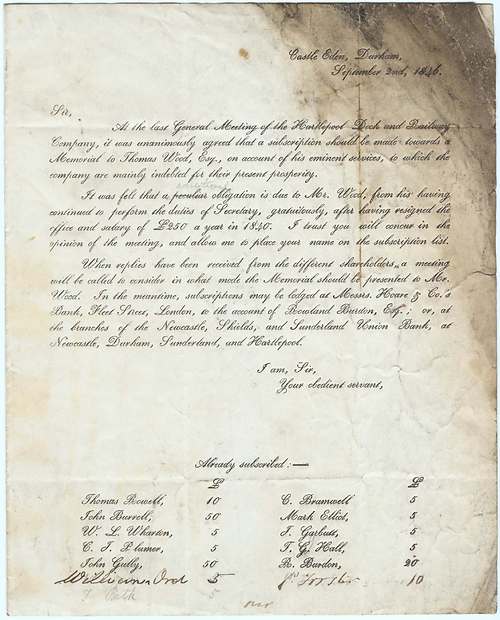 Castle Eden, Durham,
September 2nd, 1846.
Sir,
At the last General Meeting of the Hartlepool Dock and Railway
Company, it was unanimously agreed that a subscription should be made towards a
Memorial to Thomas Wood, Esq., on account of his eminent services, to which the
company are mainly indebted for their present prosperity.
It was felt that a peculiar obligation is due to Mr. Wood, from his having
continued to perform the duties of Secretary, gratuitously, after having resigned the
office and salary of £250 a year in 1840. I trust you will concur in the
opinion of the meeting, and allow me to place your name on the subscription list.
When replies have been received from the different shareholders, a meeting
will be called to consider in what mode the Memorial should be presented to Mr.
Wood. In the meantime, subscriptions may be lodged at Messrs. Hoare & Co.'s
Bank, Fleet Street, London, to the account of Rowland Burdon, Esq.; or, at
the branches of the Newcastle, Shields, and Sunderland Union Bank, at
Newcastle, Durham, Sunderland, and Hartlepool.
I am, Sir,
Your obedient servant,
Already subscribed:—
£ £
Thomas Rowell, 10 C. Bramwell 5
John Burrell, 50 Mark Elliot, 5
W. L. Wharton, 5 J. Garbutt, 5
C. J. Plumer, 5 T. G. Hall, 5
John Gully, 50 R. Burdon, 20
William Ord 5 10
5